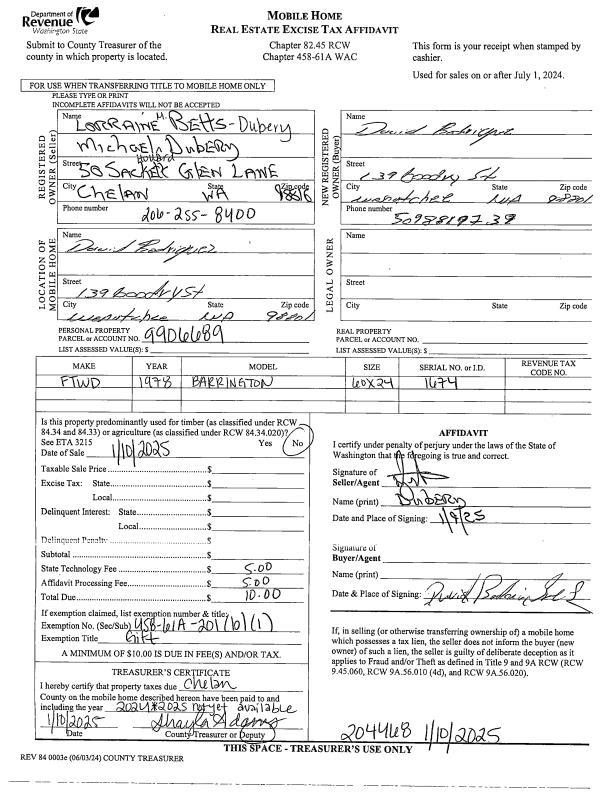 Department of
Revenue
Washington State
MOBILE HOME
REAL ESTATE EXCISE TAX AFFIDAVIT
Submit to County Treasurer of the
county in which property is located.
Chapter 82.45 RCW
Chapter 458-61A WAC
This form is your receipt when stamped by
cashier.
Used for sales on or after July 1, 2024.
FOR USE WHEN TRANSFERRING TITLE TO MOBILE HOME ONLY
PLEASE TYPE OR PRINT
INCOMPLETE AFFIDAVITS WILL NOT BE ACCEPTED
REGISTERED
OWNER (Seller)
Name
LORRAINE M. BETTS-Dubery
Michael Howard DUBERY
Street 50 SACKET GLEN LANE
City State Zip code
CHELAN WA 98816
Phone number
206-255-8400
NEW REGISTERED
OWNER (Buyer)
Name
David Rodriguez
Street
139 Boodry St
City State Zip code
wenatchee WA 98801
Phone number
5098819739
LOCATION OF
MOBILE HOME
Name
David Rodriguez
Street
139 Boodry St
City State Zip code
wenatchee WA 98801
LEGAL OWNER
Name
Street
City State Zip code
PERSONAL PROPERTY
PARCEL or ACCOUNT NO. 9906689
LIST ASSESSED VALUE(S): $
REAL PROPERTY
PARCEL or ACCOUNT NO.
LIST ASSESSED VALUE(S): $
MAKE YEAR MODEL SIZE SERIAL NO. or I.D. REVENUE TAX CODE NO.
FTWD 1978 BARRINGTON 60X24 1674
Is this property predominantly used for timber (as classified under RCW
84.34 and 84.33) or agriculture (as classified under RCW 84.34.020)?
See ETA 3215 Yes No
Date of Sale 1/10/2025
Taxable Sale Price $
Excise Tax: State $
Local $
Delinquent Interest: State $
Local $
Delinquent Penalty $
Subtotal $
State Technology Fee $ 5.00
Affidavit Processing Fee $ 5.00
Total Due $ 10.00
If exemption claimed, list exemption number & title:
Exemption No. (Sec/Sub) 458-61A-201(b)(1)
Exemption Title Gift
A MINIMUM OF $10.00 IS DUE IN FEE(S) AND/OR TAX.
TREASURER'S CERTIFICATE
I hereby certify that property taxes due Chelan
County on the mobile home described hereon have been paid to and
including the year 2024 * 2025 not yet available
1/10/2025 Shayla Adams
Date County Treasurer or Deputy
AFFIDAVIT
I certify under penalty of perjury under the laws of the State of
Washington that the foregoing is true and correct.
Signature of
Seller/Agent
Name (print) DUBERY
Date and Place of Signing: 1/9/25
Signature of
Buyer/Agent
Name (print)
Date & Place of Signing:
If, in selling (or otherwise transferring ownership of) a mobile home
which possesses a tax lien, the seller does not inform the buyer (new
owner) of such a lien, the seller is guilty of deliberate deception as it
applies to Fraud and/or Theft as defined in Title 9 and 9A RCW (RCW
9.45.060, RCW 9A.56.010 (4d), and RCW 9A.56.020).
204468 1/10/2025
THIS SPACE - TREASURER'S USE ONLY
REV 84 0003e (06/03/24) COUNTY TREASURER